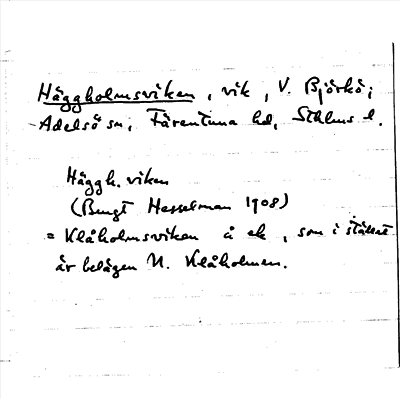 Häggholmsviken, vik, V. Björkö i
Adelsö sn, Färentuna hd, Sthlms l.
Häggh. viken
(Bengt Hesselman 1908)
= Klåholmsviken å ek, som i stället
är belägen N. Klåholmen.